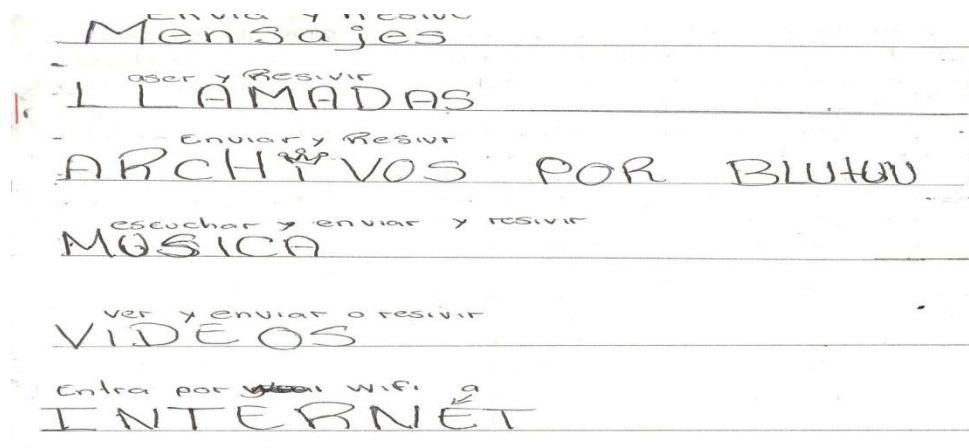 Envia y Resivo
Mensajes
aser y Resivir
LLAMADAS
Enviar y Resivr
ARCHIVOS POR BLUtUU
escuchar y enviar y resivir
MUSICA
ver y enviar o resivir
VIDEOS
Entra por wifi a
INTERNET